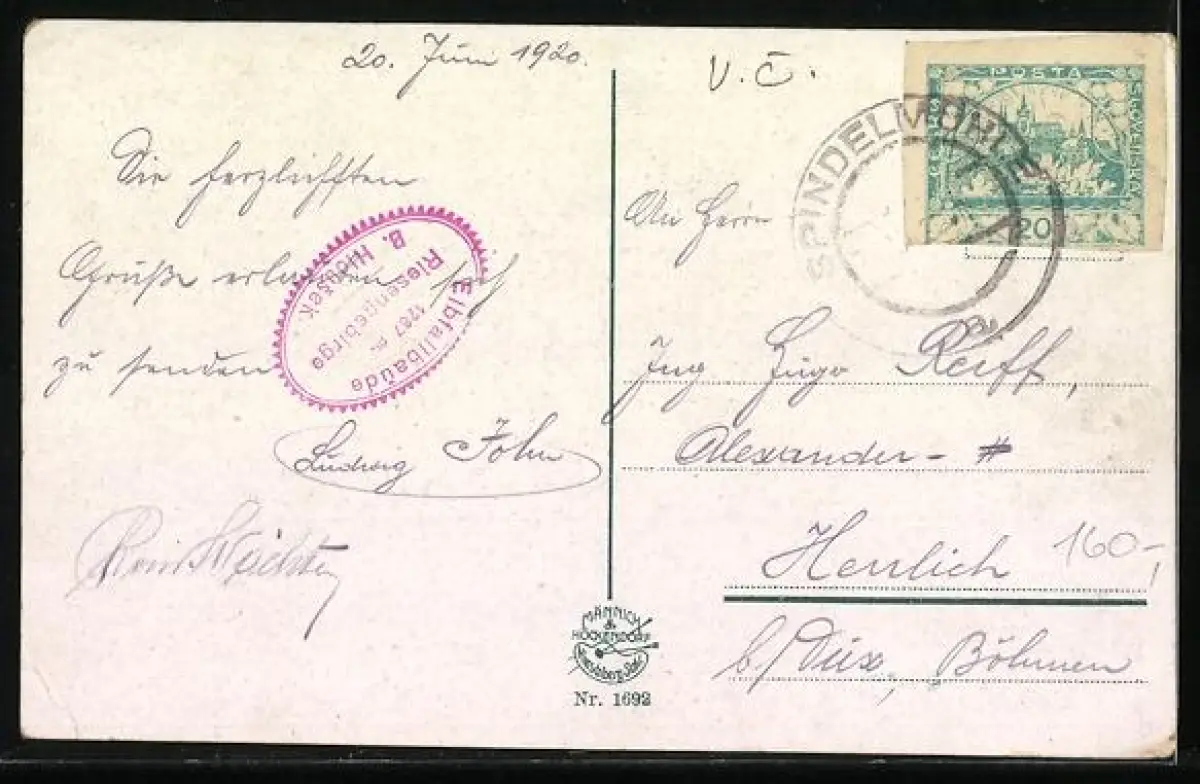 20. Juni 1920.
V. Č.
Die herzlichsten
Grüße erlauben sich
zu senden
Ludwig John
B. Hloušek
Riesengebirge
1287 m.
Elbfallbaude
POSTA
ČESKO
SLOVENSKÁ
20
SPINDELMÜHLE
An Herrn
Ing Hugo Reiff,
Alexander- #
Herrlich
160,-
b/ Dux, Böhmen
MÄNNICH
&
HÖCKENDORF
Nr. 1692